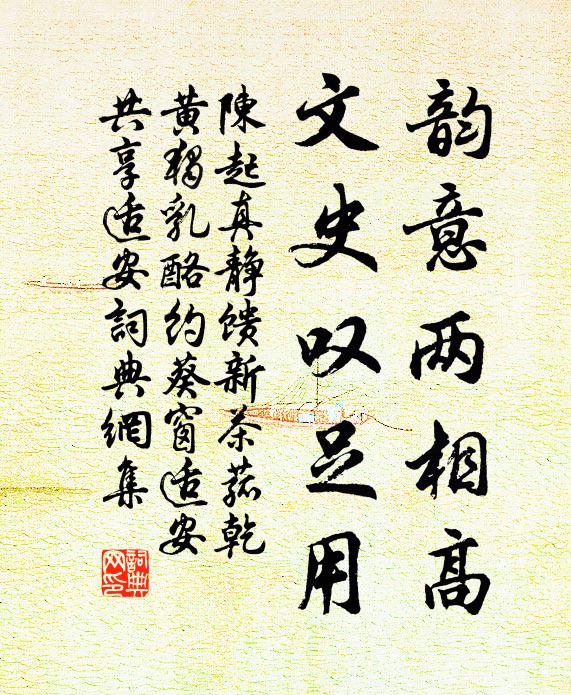 韵意两相高
文史叹足用
陳起真靜馈新茶菰乾
黄獨乳酪约葵窗适安
共享适安詞典網集
詞典网印